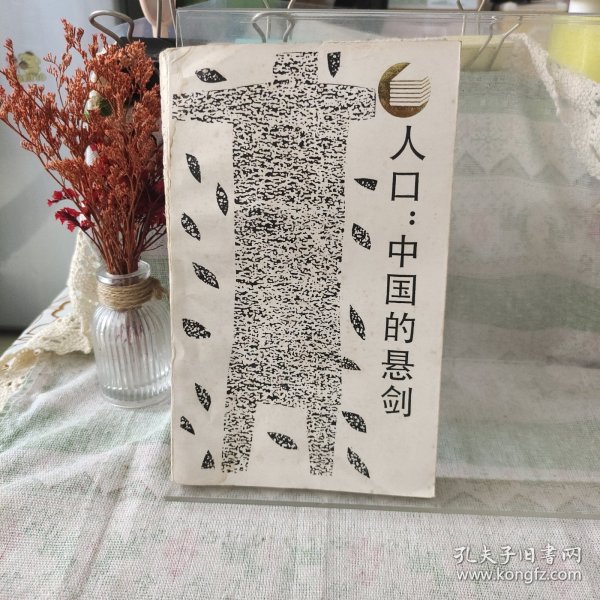 人口：中国的悬剑
孔夫子旧书网
www.kongfz.com